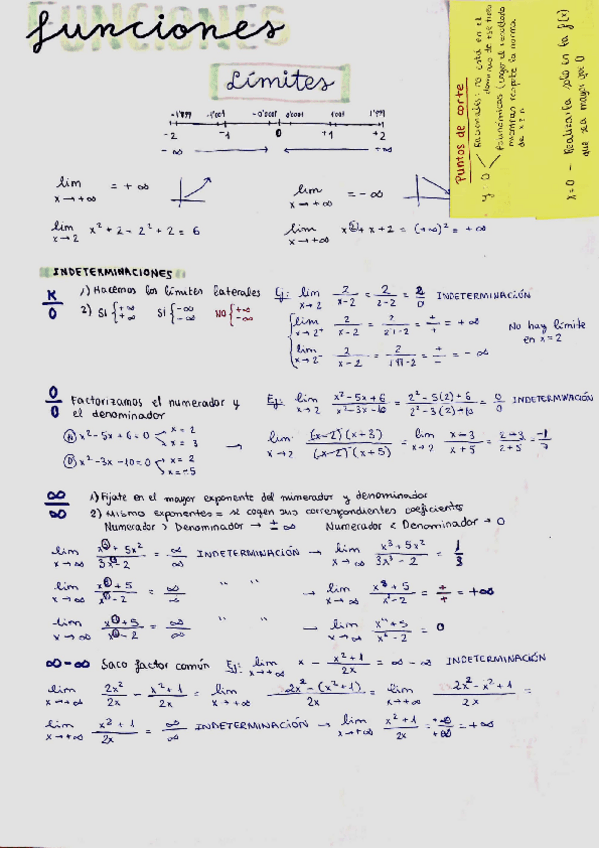 FUNCIONES
funciones
Límites
-1'999 -1'001 -0'001 0'001 1'001 1'999
-2 -1 0 +1 +2
-∞ +∞
Puntos de corte
y: 0
Racionales: no está en el
dominio de ese trozo
Polinómicas (coger el resultado
mientras respete la norma
de x ≥ n
x=0 - Realizarla solo en la f(x)
que sea mayor que 0
lim x→+∞ = +∞
lim x→+∞ = -∞
lim x→2 x² + 2 - 2² + 2 = 6
lim x→+∞ x² + x + 2 = (+∞)² = +∞
INDETERMINACIONES
K/0 1) Hacemos los límites laterales Ej: lim x→2 2/(x-2) = 2/(2-2) = 2/0 INDETERMINACIÓN
2) SI {+∞ +∞ SI {-∞ -∞ NO {+∞ -∞
lim x→2⁺ 2/(x-2) = 2/(2'1-2) = +/+ = +∞
No hay límite
en x=2
lim x→2⁻ 2/(x-2) = 2/(1'9-2) = +/- = -∞
0/0 Factorizamos el numerador y
el denominador
Ej: lim x→2 (x²-5x+6)/(x²-3x-10) = (2²-5(2)+6)/(2²-3(2)+10) = 0/0 INDETERMINACIÓN
(N) x²-5x+6=0 x=2 x=3
(D) x²-3x-10=0 x=2 x=-5
→ lim x→2 (x-2)(x+3)/(x-2)(x+5) = lim x→2 (x-3)/(x+5) = (2-3)/(2+5) = -1/7
∞/∞ 1) Fíjate en el mayor exponente del numerador y denominador
2) Mismo exponentes = se cogen sus correspondientes coeficientes
Numerador > Denominador → ±∞ Numerador < Denominador → 0
lim x→∞ (x³+5x²)/(3x³-2) = ∞/∞ INDETERMINACIÓN → lim x→∞ (x³+5x²)/(3x³-2) = 1/3
lim x→∞ = ∞/∞ " " → lim x→∞ = +/+ = +∞
lim x→∞ = ∞/∞ " " → lim x→∞ = 0
∞-∞ Saco factor común Ej: lim x→+∞ x - (x²+1)/2x = ∞-∞ INDETERMINACIÓN
lim x→+∞ 2x²/2x - (x²+1)/2x = lim x→+∞ (2x²-(x²+1))/2x = lim x→+∞ (2x²-x²+1)/2x =
lim x→+∞ (x²+1)/2x = ∞/∞ INDETERMINACIÓN → lim x→+∞ (x²+1)/2x = +∞/+∞ = +∞